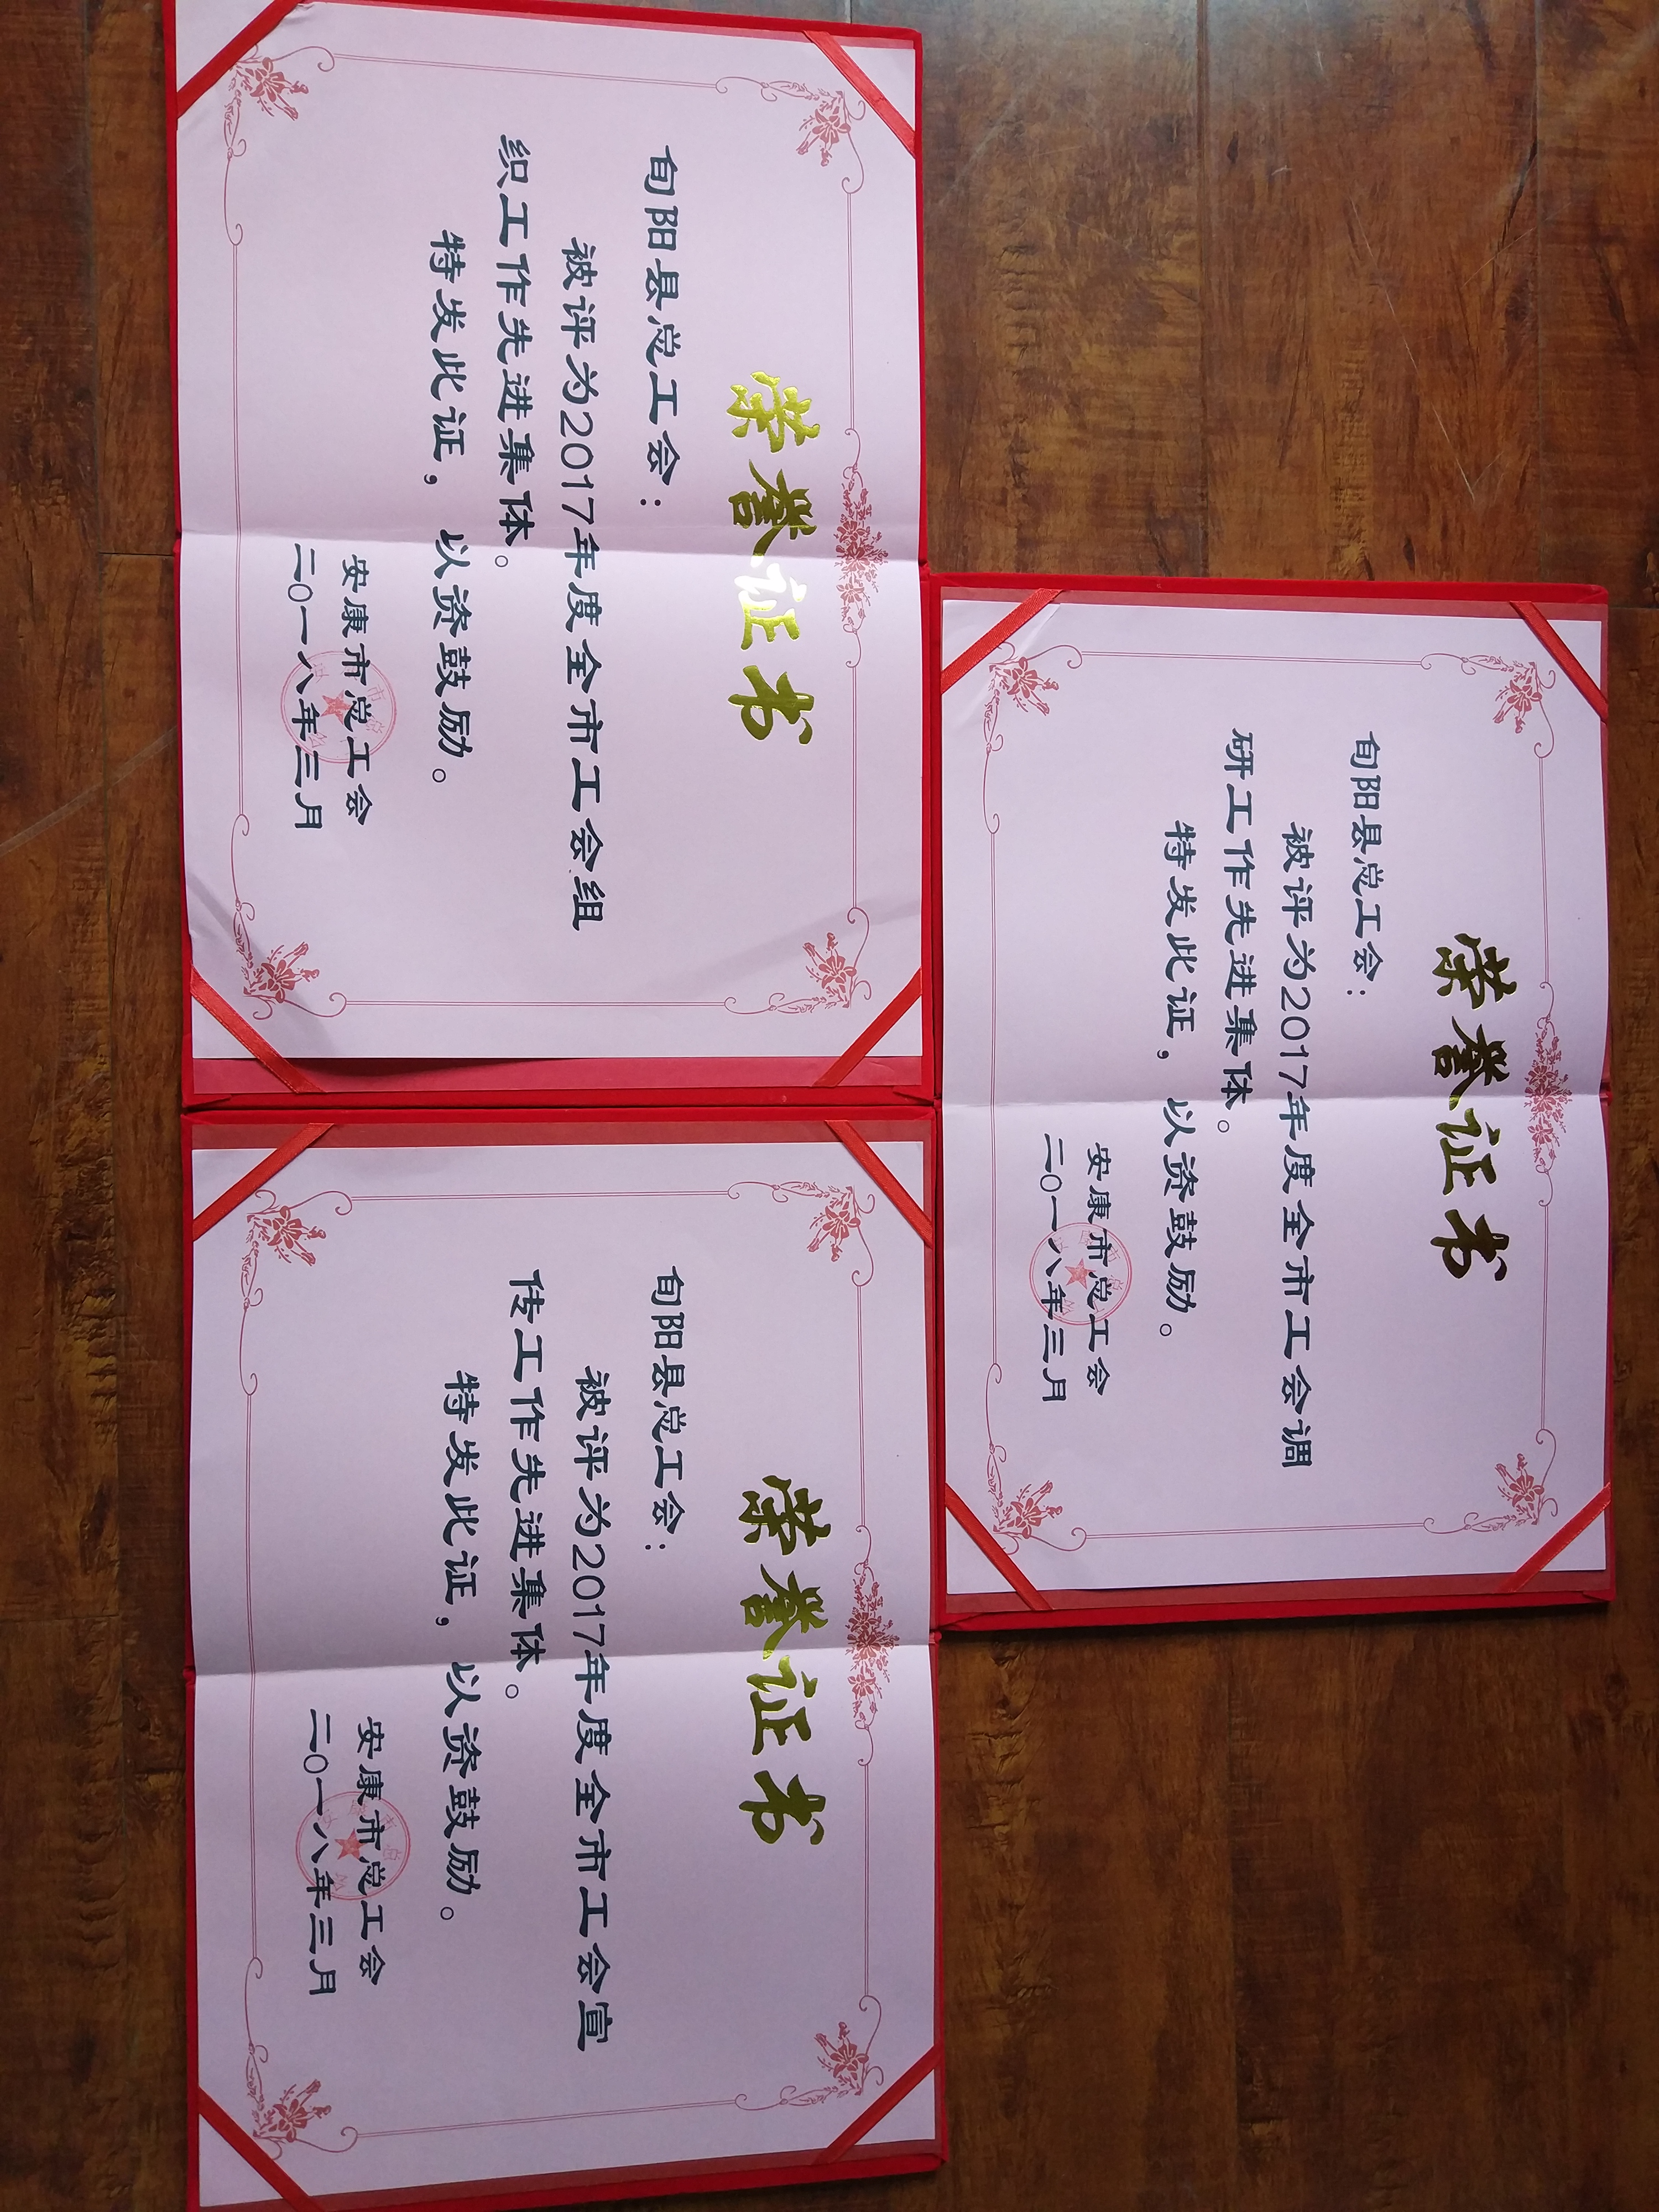 荣誉证书
旬阳县总工会：
被评为2017年度全市工会调
研工作先进集体。
特发此证，以资鼓励。
安康市总工会
二〇一八年三月
荣誉证书
旬阳县总工会：
被评为2017年度全市工会组
织工作先进集体。
特发此证，以资鼓励。
安康市总工会
二〇一八年三月
荣誉证书
旬阳县总工会：
被评为2017年度全市工会宣
传工作先进集体。
特发此证，以资鼓励。
安康市总工会
二〇一八年三月